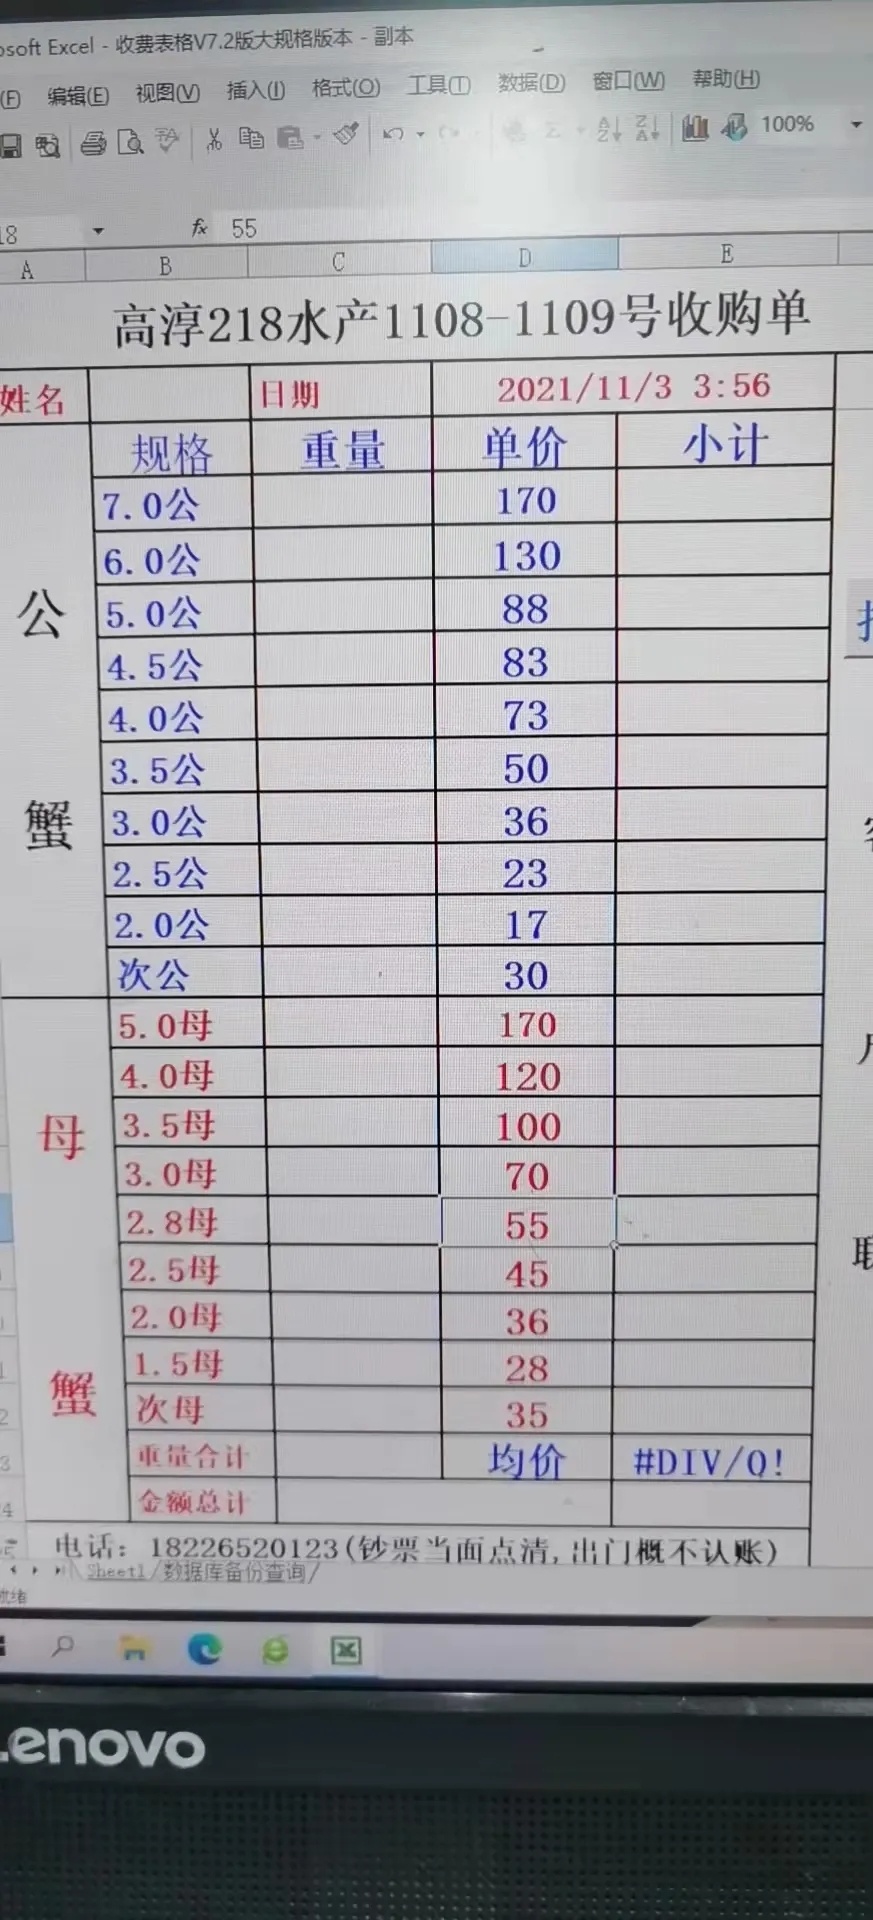 osoft Excel - 收费表格V7.2版大规格版本 - 副本
(F) 编辑(E) 视图(V) 插入(I) 格式(O) 工具(T) 数据(D) 窗口(W) 帮助(H)
100%
18 fx 55
A B C D E
高淳218水产1108-1109号收购单
姓名 日期 2021/11/3 3:56
规格 重量 单价 小计
公蟹
7.0公 170
6.0公 130
5.0公 88
4.5公 83
4.0公 73
3.5公 50
3.0公 36
2.5公 23
2.0公 17
次公 30
母蟹
5.0母 170
4.0母 120
3.5母 100
3.0母 70
2.8母 55
2.5母 45
2.0母 36
1.5母 28
次母 35
重量合计 均价 #DIV/0!
金额总计
电话: 18226520123(钞票当面点清,出门概不认账)
Sheet1/数据库备份查询/
就绪
Lenovo